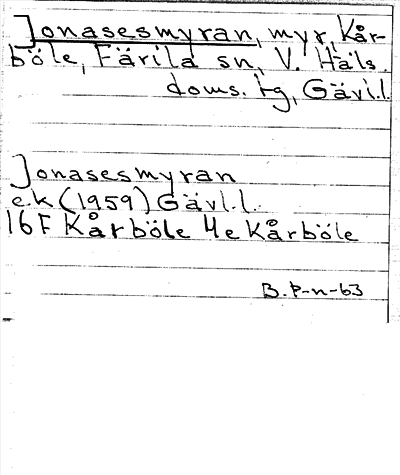 Jonasesmyran, myr, Kår-
böle, Färila sn, V. Häls.
doms. tg, Gävl.l.
Jonasesmyran
e.k (1959) Gävl.l.
16F Kårböle 4e Kårböle
B. P-n-63